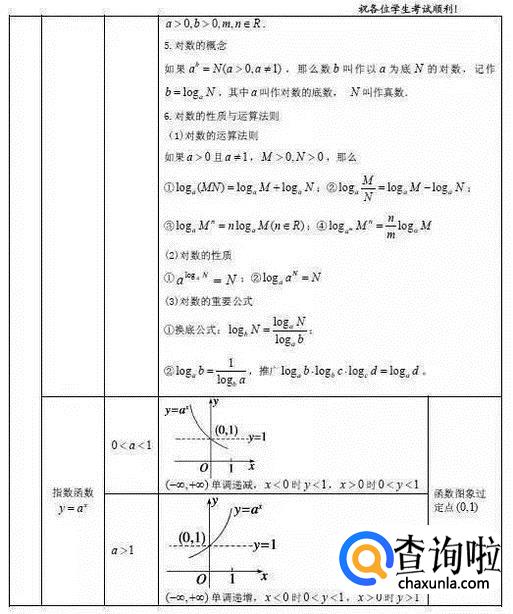 祝各位学生考试顺利!
a>0,b>0,m,n∈R.
5.对数的概念
如果 a^b=N(a>0,a≠1), 那么数 b 叫作以 a 为底 N 的对数, 记作
b=log_a N, 其中 a 叫作对数的底数, N 叫作真数.
6.对数的性质与运算法则
(1)对数的运算法则
如果 a>0 且 a≠1, M>0,N>0, 那么
①log_a(MN)=log_a M+log_a N; ②log_a M/N=log_a M-log_a N;
③log_a M^n=nlog_a M(n∈R); ④log_{a^m} M^n=n/m log_a M
(2)对数的性质
①a^{log_a N}=N; ②log_a a^N=N
(3)对数的重要公式
①换底公式: log_b N=log_a N/log_a b;
②log_a b=1/log_b a, 推广 log_a b·log_b c·log_c d=log_a d。
指数函数
y=a^x
0<a<1
y=a^x
y
(0,1)
y=1
O 1 x
(-∞,+∞)单调递减, x<0时y<1, x>0时0<y<1
a>1
y
y=a^x
(0,1)
y=1
O 1 x
(-∞,+∞)单调递增, x<0时0<y<1, x>0时y>1
函数图象过
定点(0,1)
查询啦
chaxunla.com